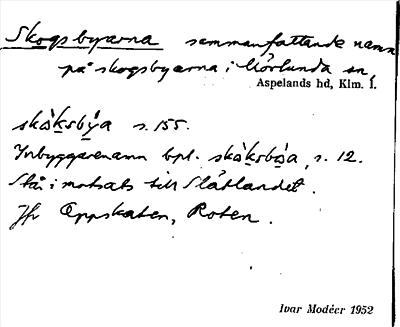 Skogsbyarna sammanfattande namn
på skogsbyarna i Mörlunda sn,
Aspelands hd, Klm. l.
skòksbýa s. 155.
Inbyggarenamn bpl. skòksbóa, s. 12.
Stå i motsats till Slätlandet.
Jfr Oppskaten, Roten.
Ivar Modéer 1952